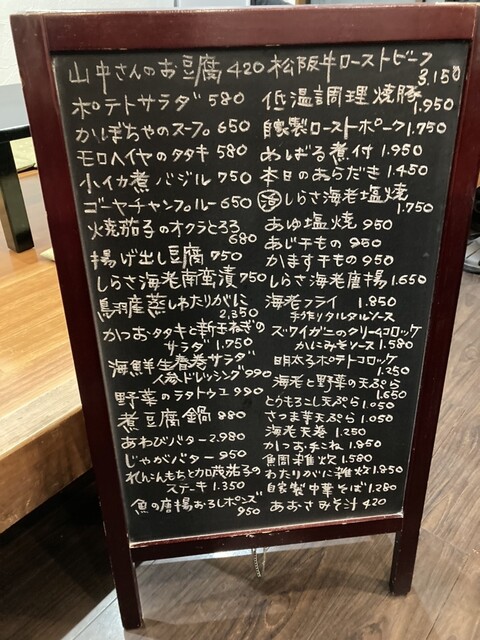 山中さんのお豆腐 420
ポテトサラダ 580
かぼちゃのスープ 650
モロヘイヤのタタキ 580
小イカ煮バジル 750
ゴーヤチャンプルー 650
焼茄子のオクラとろろ
680
揚げ出し豆腐 750
しらさ海老南蛮漬 750
鳥羽産蒸しわたりがに
2,350
かつおタタキと新玉ねぎの
サラダ 1.750
海鮮生春巻サラダ
人参ドレッシング 990
野菜のラタトゥユ 990
煮豆腐鍋 880
あわびバター 2.980
じゃがバター 950
れんこんもちと加茂茄子の
ステーキ 1.350
魚の唐揚おろしポンズ
950
松阪牛ローストビーフ
3150
低温調理焼豚
1.950
自家製ローストポーク 1.750
めばる煮付 1.950
本日のあらだき 1.450
活しらさ海老塩焼
1.750
あゆ塩焼 950
あじ干もの 950
かます干もの 950
しらさ海老唐揚 1.650
海老フライ 1.850
手作りタルタルソース
ズワイガニのクリームコロッケ
かにみそソース 1.580
明太子ポテトコロッケ
1.250
海老と野菜の天ぷら
1.650
とうもろこし天ぷら 1.050
さつま芋天ぷら 1.050
海老天巻 1.250
かつお手こね 1.850
魚周雑炊 1.580
わたりがに雑炊 1.850
自家製中華そば 1.280
あおさみそ汁 420